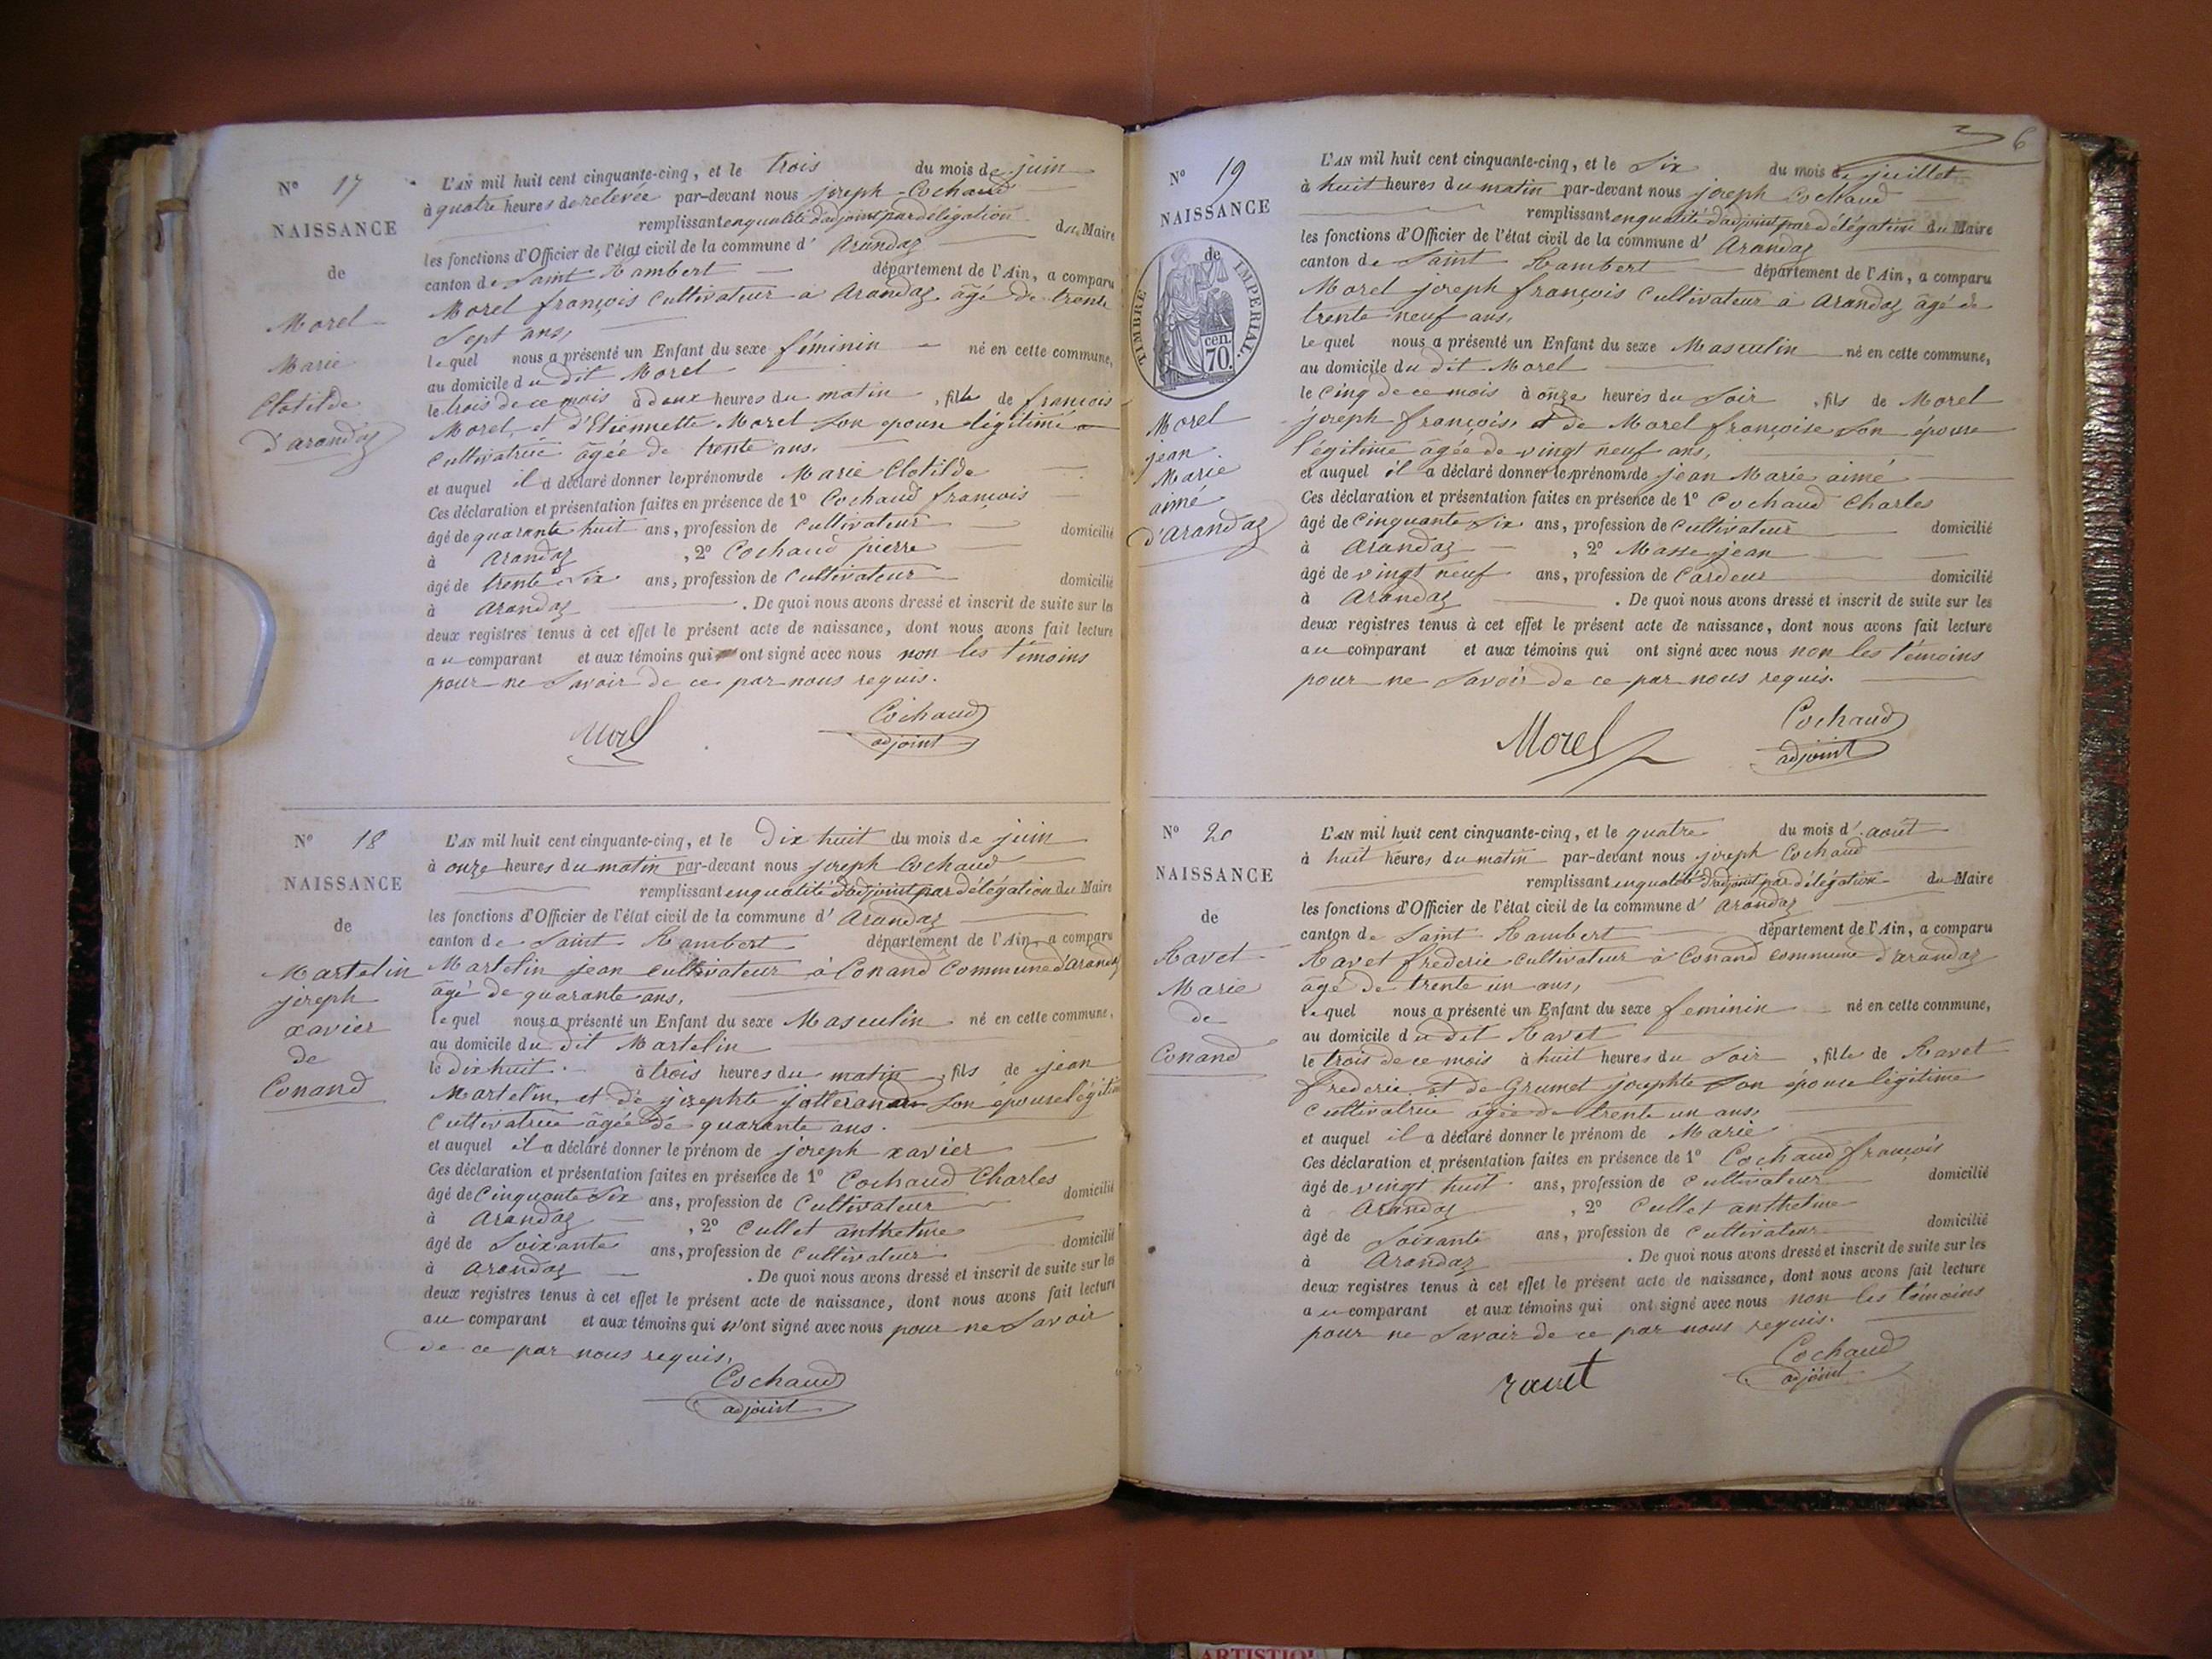 Nº 17
NAISSANCE
de
Morel
Marie
Clotilde
d'arandaz
L'AN mil huit cent cinquante-cinq, et le trois du mois de juin
à quatre heures de relevée par-devant nous joseph Cochaud
remplissant en qualité d'adjoint par délégation du Maire
les fonctions d'Officier de l'état civil de la commune d' Arandaz
canton de Saint Rambert département de l'Ain, a comparu
Morel françois Cultivateur à Arandaz âgé de trente
Sept ans,
lequel nous a présenté un Enfant du sexe féminin né en cette commune,
au domicile du dit Morel
le trois de ce mois à deux heures du matin, fille de françois
Morel, et d'Etiennette Morel son epouse légitime
Cultivatrice âgée de trente ans.
et auquel il a déclaré donner les prénoms de Marie Clotilde
Ces déclaration et présentation faites en présence de 1º Cochaud françois
âgé de quarante huit ans, profession de Cultivateur domicilié
à Arandaz, 2º Cochaud pierre
âgé de trente Six ans, profession de Cultivateur domicilié
à Arandaz. De quoi nous avons dressé et inscrit de suite sur les
deux registres tenus à cet effet le présent acte de naissance, dont nous avons fait lecture
au comparant et aux témoins qui ont signé avec nous non les témoins
pour ne Savoir de ce par nous requis.
Morel Cochaud
adjoint
Nº 18
NAISSANCE
de
Martelin
joseph
xavier
de
Conand
L'AN mil huit cent cinquante-cinq, et le Dix huit du mois de juin
à onze heures du matin par-devant nous joseph Cochaud
remplissant en qualité d'adjoint par délégation du Maire
les fonctions d'Officier de l'état civil de la commune d' Arandaz
canton de Saint Rambert département de l'Ain, a comparu
Martelin jean cultivateur à Conand Commune d'Arandaz
âgé de quarante ans,
lequel nous a présenté un Enfant du sexe Masculin né en cette commune,
au domicile du dit Martelin
le dix huit. à trois heures du matin, fils de jean
Martelin, et de josephte son épouse légitime
Cultivatrice âgée de quarante ans.
et auquel il a déclaré donner le prénom de joseph xavier
Ces déclaration et présentation faites en présence de 1º Cochaud Charles
âgé de Cinquante Six ans, profession de Cultivateur domicilié
à Arandaz, 2º Cullet anthelme
âgé de Soixante ans, profession de Cultivateur domicilié
à Arandaz. De quoi nous avons dressé et inscrit de suite sur les
deux registres tenus à cet effet le présent acte de naissance, dont nous avons fait lecture
au comparant et aux témoins qui n'ont signé avec nous pour ne Savoir
de ce par nous requis,
Cochaud
adjoint
6
Nº 19
NAISSANCE
de
TIMBRE IMPERIAL.
70. cen.
Morel
jean
Marie
aimé
d'Arandaz
L'AN mil huit cent cinquante-cinq, et le Six du mois de juillet
à huit heures du matin par-devant nous joseph Cochaud
remplissant en qualité d'adjoint par délégation du Maire
les fonctions d'Officier de l'état civil de la commune d' Arandaz
canton de Saint Rambert département de l'Ain, a comparu
Morel joseph françois Cultivateur à Arandaz âgé de
trente neuf ans,
Lequel nous a présenté un Enfant du sexe Masculin né en cette commune,
au domicile du dit Morel
le Cinq de ce mois à onze heures du Soir, fils de Morel
joseph françois, et de Morel françoise Son épouse
légitime âgée de vingt neuf ans,
et auquel il a déclaré donner les prénoms de jean Marie aimé
Ces déclaration et présentation faites en présence de 1º Cochaud Charles
âgé de Cinquante Six ans, profession de Cultivateur domicilié
à Arandaz, 2º Masse jean
âgé de vingt neuf ans, profession de Cardeur domicilié
à Arandaz. De quoi nous avons dressé et inscrit de suite sur les
deux registres tenus à cet effet le présent acte de naissance, dont nous avons fait lecture
au comparant et aux témoins qui ont signé avec nous non les témoins
pour ne Savoir de ce par nous requis.
Morel Cochaud
adjoint
Nº 20
NAISSANCE
de
Ravet
Marie
de
Conand
L'AN mil huit cent cinquante-cinq, et le quatre du mois d'août
à huit heures du matin par-devant nous joseph Cochaud
remplissant en qualité d'adjoint par délégation du Maire
les fonctions d'Officier de l'état civil de la commune d' Arandaz
canton de Saint Rambert département de l'Ain, a comparu
Ravet frederic Cultivateur à Conand commune d'arandaz
âgé de trente un ans,
lequel nous a présenté un Enfant du sexe feminin né en cette commune,
au domicile du dit Ravet
le trois de ce mois à huit heures du Soir, fille de Ravet
frederic et de Grumet josephte Son épouse légitime
Cultivatrice âgée de trente un ans,
et auquel il a déclaré donner le prénom de Marie
Ces déclaration et présentation faites en présence de 1º Cochaud françois
âgé de vingt huit ans, profession de Cultivateur domicilié
à Arandaz, 2º Cullet anthelme
âgé de Soixante ans, profession de Cultivateur domicilié
à Arandaz. De quoi nous avons dressé et inscrit de suite sur les
deux registres tenus à cet effet le présent acte de naissance, dont nous avons fait lecture
au comparant et aux témoins qui ont signé avec nous non les témoins
pour ne Savoir de ce par nous requis.
ravet Cochaud
adjoint